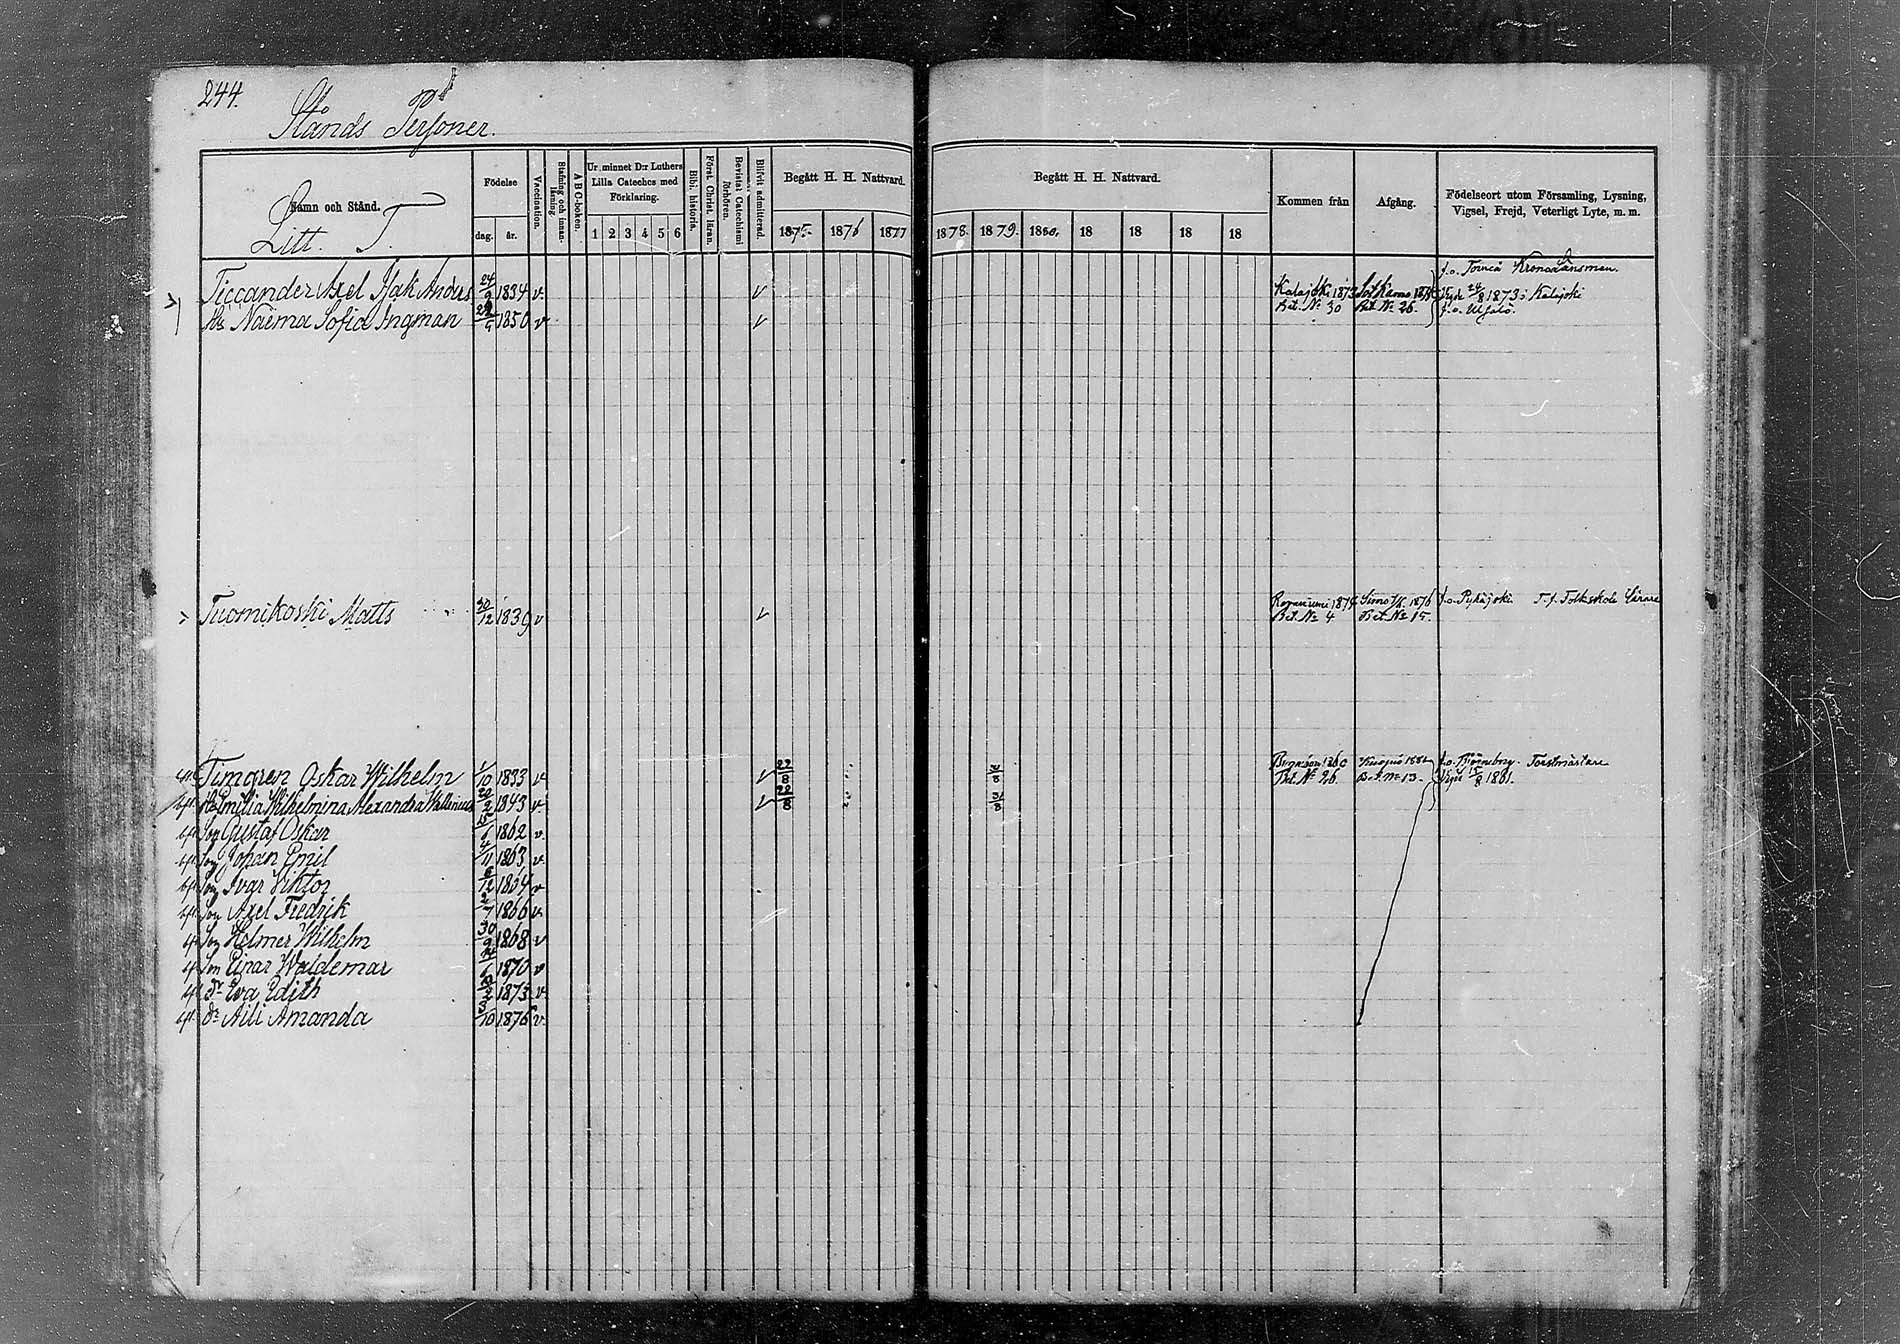 244.
Stånds Personer.
Namn och Stånd.
Litt. T.
Födelse
dag. år.
Vaccination.
Stafning och innan-läsning.
ABC-boken.
Ur minnet D:r Luthers
Lilla Cateches med
Förklaring.
1 2 3 4 5 6
Bibl. historia.
Först. Christ. läran.
Bevistat Catechismi förhören.
Blifvit admitterad.
Begått H. H. Nattvard.
1875. 1876 1877
Begått H. H. Nattvard.
1878. 1879. 1880. 18 18 18 18
Kommen från
Afgång.
Födelseort utom Församling, Lysning,
Vigsel, Frejd, Veterligt Lyte, m. m.
f.o. Torneå Kronolänsman.
Ticcander Axel Isak Anders 24/9 1834 v. v Kalajoki 1873 Sotkamo Vigde 24/8 1873 i Kalajoki
Bet. No 30 Bet. No 26.
Hu Naëma Sofia Ingman 1850 v v f.o. Ulfsalo.
Tuomikoski Matts 30/12 1839 v v Rovaniemi 1874 Simo 1876 f.o. Pyhäjoki T.f. Folkskole Lärare
Bet. No 4 Bet. No 15.
Timgren Oskar Wilhelm 1/10 1833 v. v 22/8 Kuopio 1881 f.o. Björneborg. Forstmästare
Bet. No 26 Bet. No 13. Vigde 15/8 1861.
Hu Emilia Wilhelmina Alexandra Wallenius 20/2 1843 v. v 22/8
Son Gustaf Oskar 15/6 1862 v.
Son Johan Emil 4/11 1863 v.
Son Ivar Viktor 6/12 1864 v
Son Axel Fredrik 2/7 1866 v.
Son Helmer Wilhelm 30/9 1868 v
Son Einar Waldemar 14/6 1870 v
Dr Eva Edith 10/2 1873 v.
Dr Aili Amanda 3/10 1876 v.